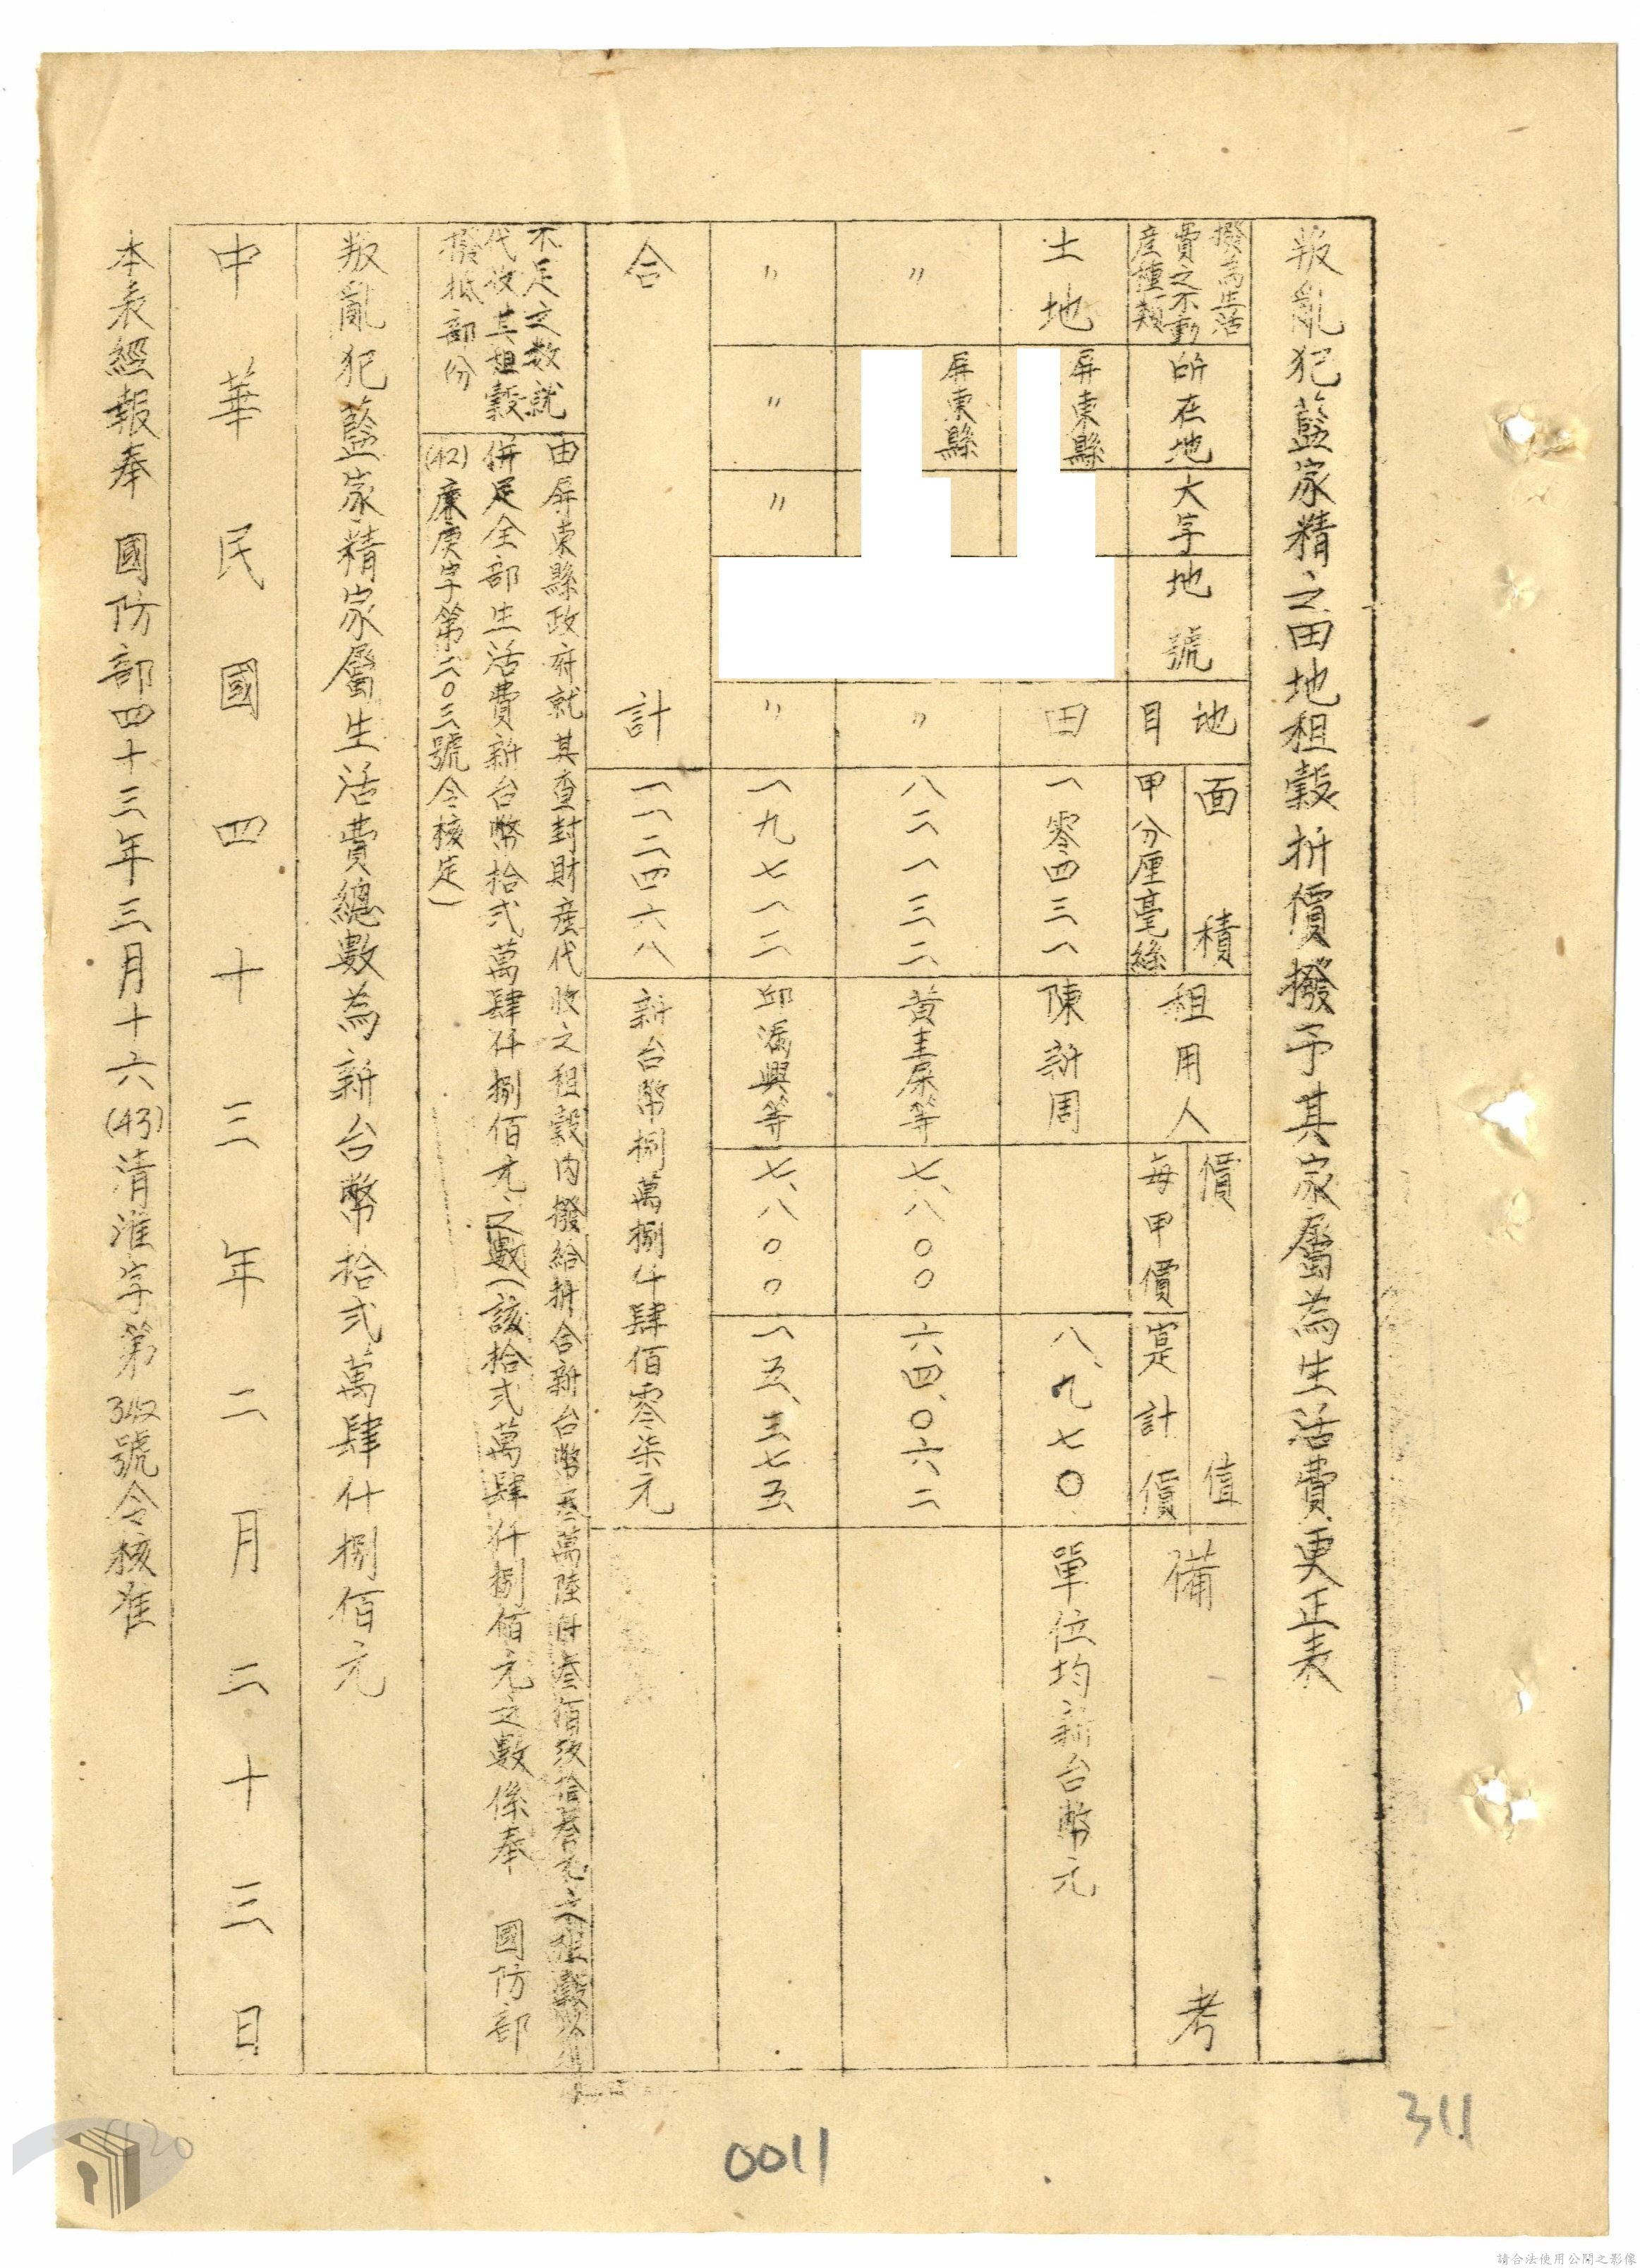 叛亂犯藍家精之田地租穀折價撥予其家屬為生活費更正表
撥為生活費之不動產種類
所在地
大字
地號
地目
面積
甲分厘毫絲
租用人
價值
每甲價
計價
備考
土地
屏東縣
田
一零四三一
陳新周
八、九七〇
單位均新台幣元
〃
屏東縣
〃
八二一三二
黃圭屎等
七、八〇〇
六四、〇六二
〃
〃
〃
〃
一九七一二
邱滿興等
七、八〇〇
一五、三七五
合計
一一二四六八
新台幣捌萬捌仟肆佰零柒元
不足之數就代收其租穀撥抵部份
由屏東縣政府就其查封財產代收之租穀內撥給折合新台幣叁萬陸仟叁佰玖拾叁元之租穀
併足全部生活費新台幣拾弍萬肆仟捌佰元、之數(該拾弍萬肆仟捌佰元之數係奉 國防部
(42)廉庚字第二〇三號令核定)
叛亂犯藍家精家屬生活費總數為新台幣拾弍萬肆仟捌佰元
中華民國四十三年二月二十三日
本表經報奉 國防部四十三年三月十六(43)清淮字第342號令核准
311
0011
請合法使用公開之影像